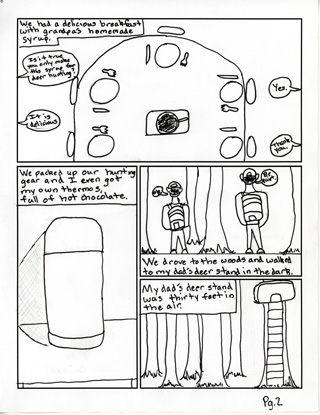 We had a delicious breakfast
with grandpa's homemade
syrup.
Is it true
you only make
this syrup for
deer hunting?
Yes.
It is
delicious
Thank
you.
We packed up our hunting
gear and I even got
my own thermos,
full of hot chocolate.
We drove to the woods and walked
to my dad's deer stand in the dark.
My dad's deer stand
was thirty feet in
the air.
Pg.2